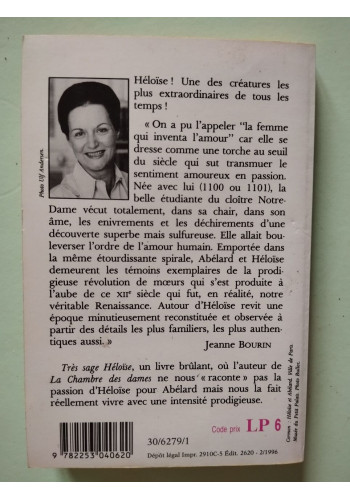 Héloïse ! Une des créatures les
plus extraordinaires de tous les
temps !
« On a pu l'appeler "la femme
qui inventa l'amour" car elle se
dresse comme une torche au seuil
du siècle qui sut transmuer le
sentiment amoureux en passion.
Née avec lui (1100 ou 1101), la
belle étudiante du cloître Notre-
Dame vécut totalement, dans sa chair, dans son
âme, les enivrements et les déchirements d'une
découverte superbe mais sulfureuse. Elle allait bou-
leverser l'ordre de l'amour humain. Emportée dans
la même étourdissante spirale, Abélard et Héloïse
demeurent les témoins exemplaires de la prodi-
gieuse révolution de mœurs qui s'est produite à
l'aube de ce XIIe siècle qui fut, en réalité, notre
véritable Renaissance. Autour d'Héloïse revit une
époque minutieusement reconstituée et observée à
partir des détails les plus familiers, les plus authen-
tiques aussi. »
Jeanne BOURIN
Très sage Héloïse, un livre brûlant, où l'auteur de
La Chambre des dames ne nous "raconte" pas la
passion d'Héloïse pour Abélard mais nous la fait
réellement vivre avec une intensité prodigieuse.
Photo Ulf Andersen.
Héloïse et Abélard. Ville de Paris.
Musée du Petit Palais. Photo Bulloz.
30/6279/1
Code prix LP 6
9 782253 040620
Dépôt légal Impr. 2910C-5 Édit. 2620 - 2/1996